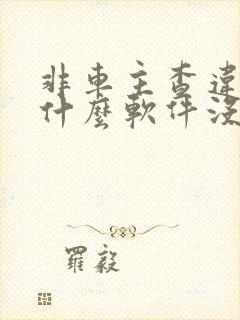 非車主查違
什麼軟件沒
羅毅